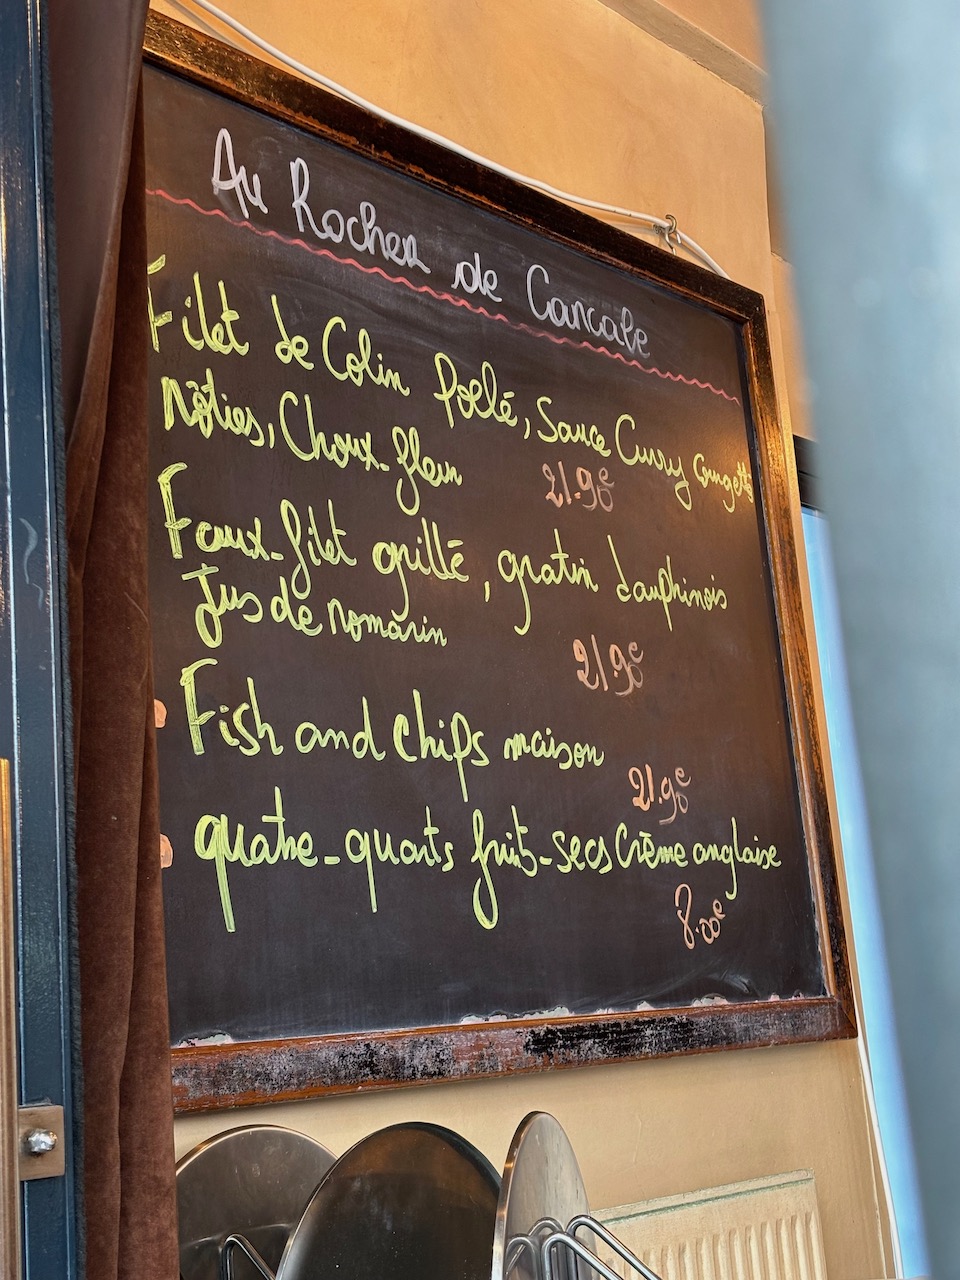 Au Rocher de Cancale
Filet de Colin Poêlé, Sauce Curry Courgett
Rôties, Choux-fleur
21.90€
Faux-filet grillé, gratin dauphinois
Jus de romarin
21.90€
Fish and chips maison
21.90€
quatre-quarts fruits-secs Crème anglaise
8.00€